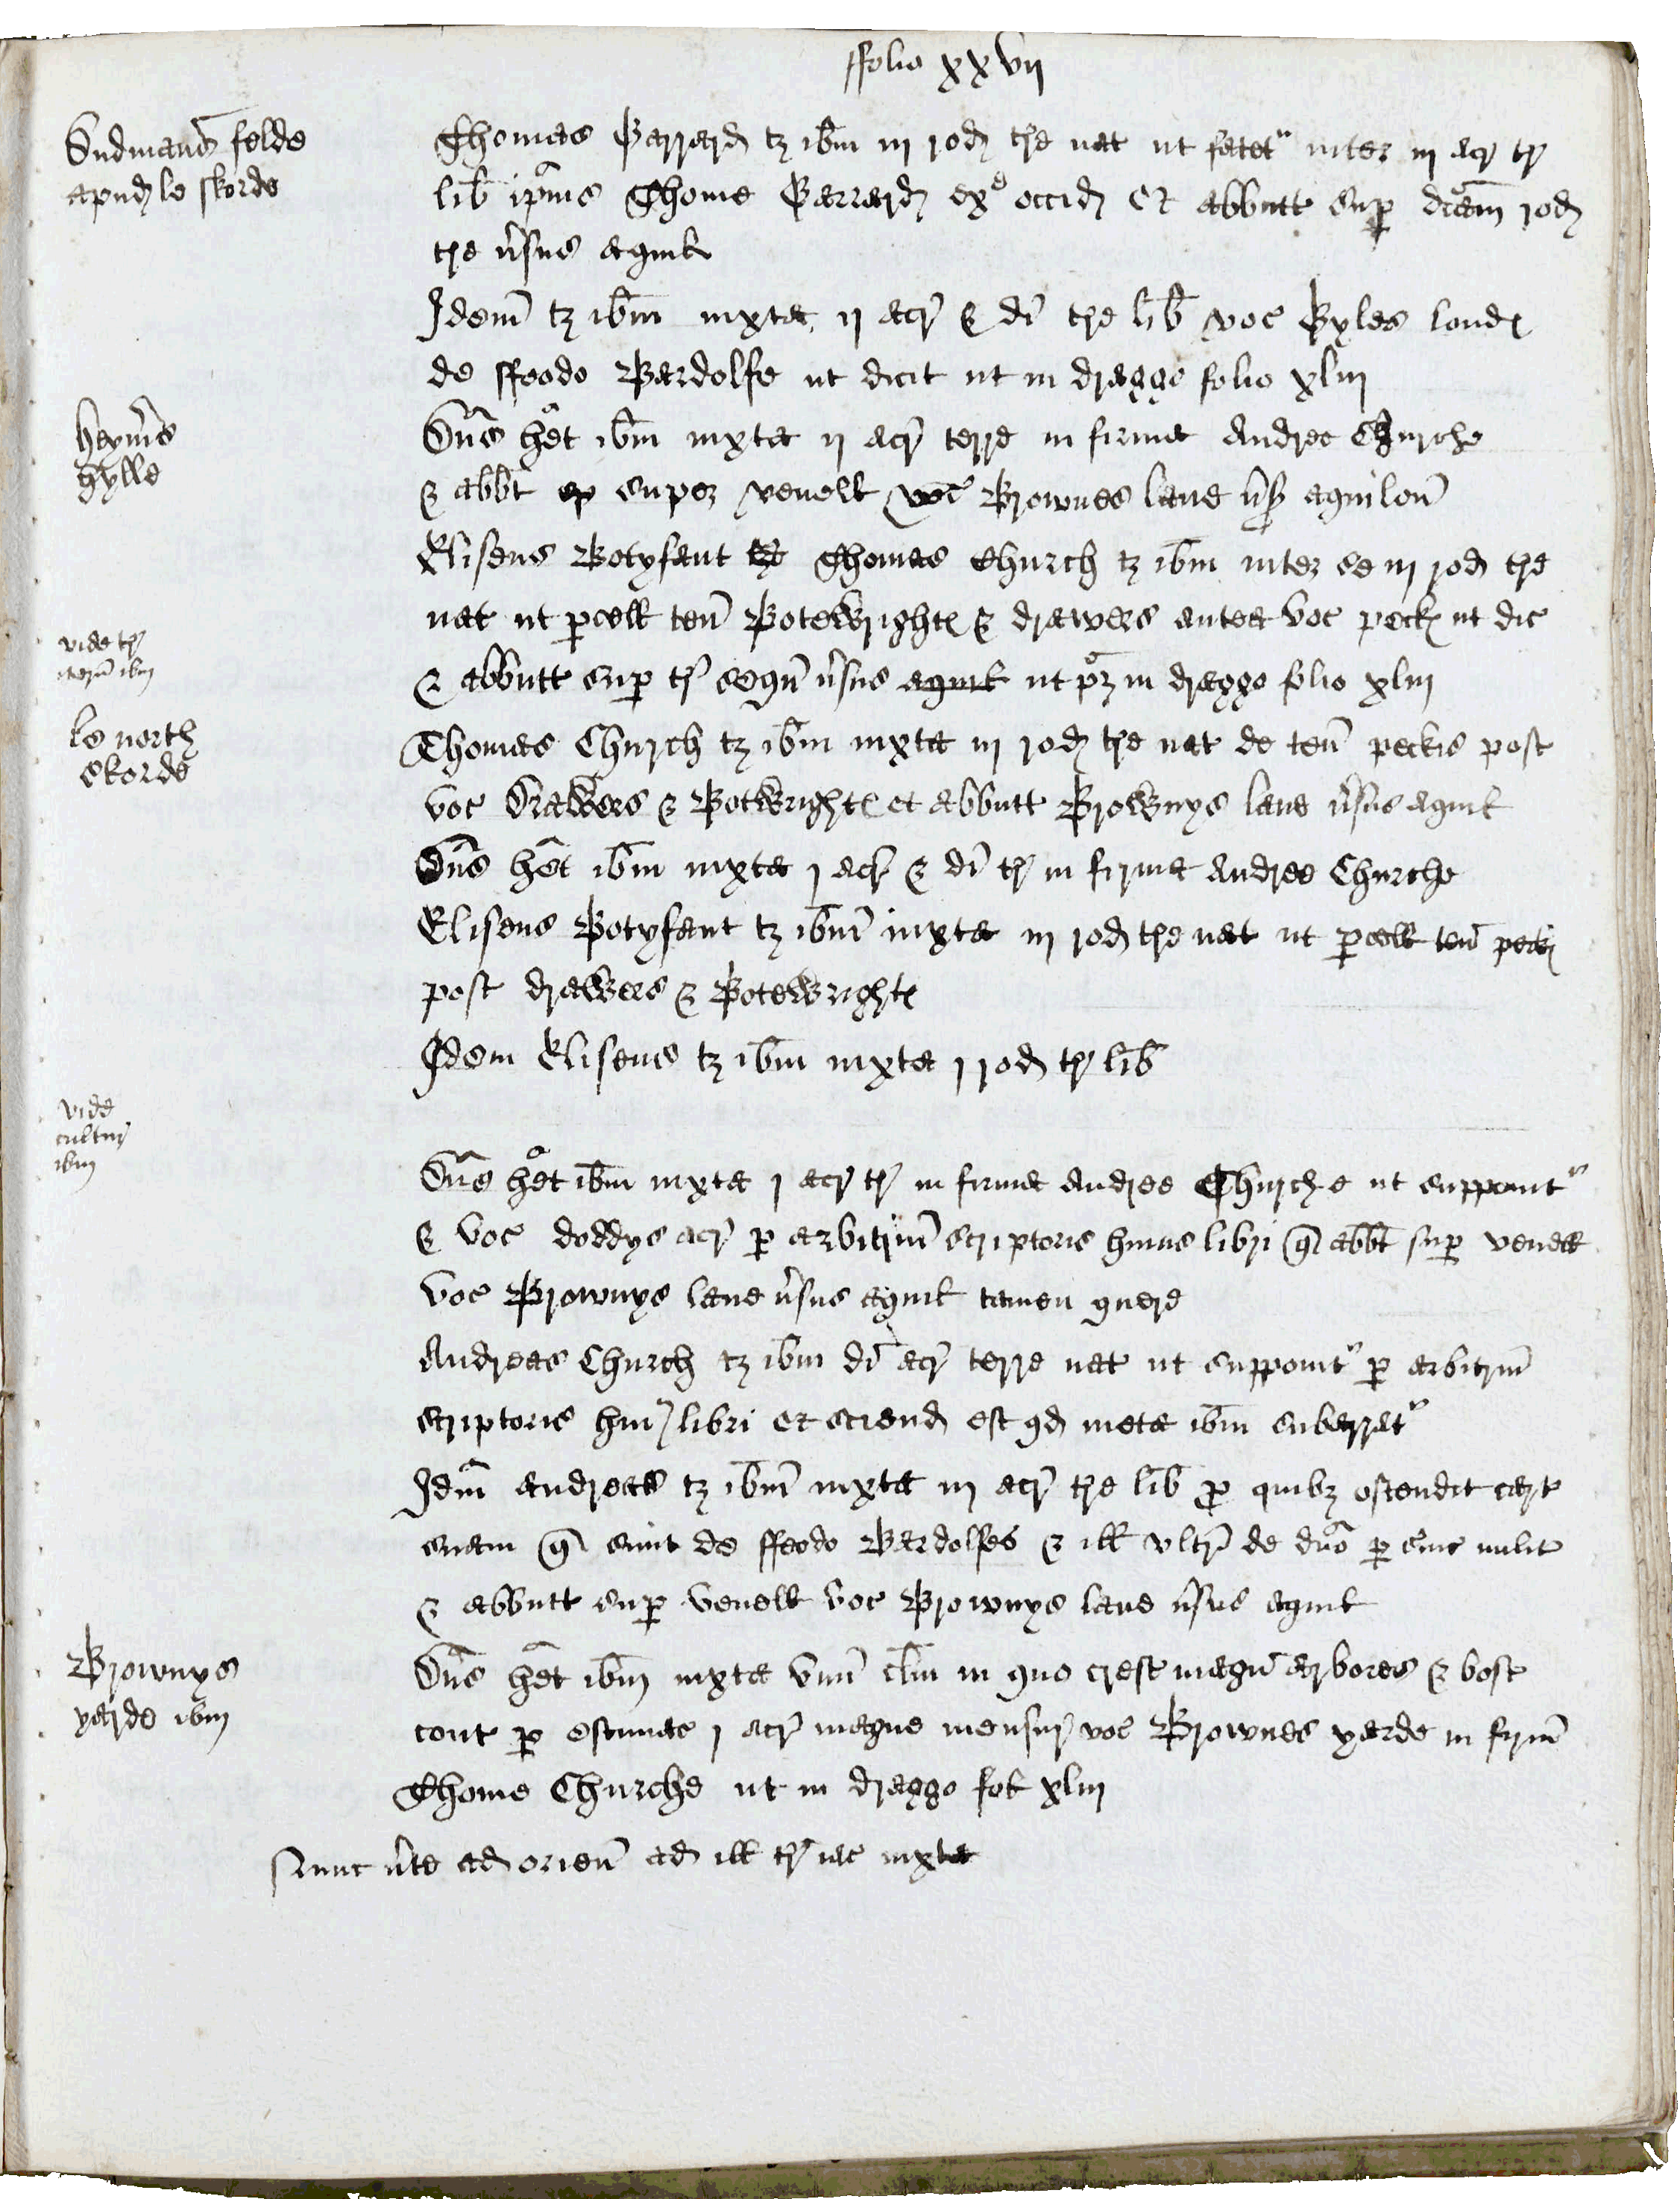 ffolio xxvij
Sudmans felde
apud le skorde
Thomas Parrard tz ibm iij rod tre nat ut fatetr inter iij acr tr
lib ipius Thome Parrard ex occid Et abbutt sup dcam rod
tre vsus aquil
Idem tz ibm iuxta ij acr & di tre lib voc Pyles lond
de ffeodo Bardolfe ut dicit ut in dragge folio xliij
hylle
Dns het ibm iuxta ij acr terre in firma Andree Churche
& abbt super venell voc Brownes lane vs aquilon
Eliseus Botyfant et Thomas Church tz ibm inter se iij rod tre
nat ut pcell ten Botewright & drawers antea voc peck ut dic
vide tr
iterum ibm
& abbutt sup tr sequ vsus aquil ut pz in draggo folio xliij
le north
skorde
Thomas Church tz ibm iuxta iij rod tre nat de ten peckis post
voc Drawers & Botwright et abbutt Brownys lane vsus aquil
Dns het ibm iuxta j acr & di tr in firma Andree Churche
Eliseus Botyfant tz ibm iuxta iij rod tre nat ut pcell ten peck
post drawers & Botewright
Idem Eliseus tz ibm iuxta j rod tr lib
vide
cultur
ibm
Dns het ibm iuxta j acr tr in firma Andree Churche ut supponitr
& voc doddys acr p arbitrium scriptoris huius libri q abbt sup venell
voc Brownys lane vsus aquil tamen quere
Andreas Church tz ibm di acr terre nat ut supponitr p arbitrium
scriptoris hui libri et sciend est qd meta ibm
Idm andreas tz ibm iuxta iij acr tre lib p quibz ostendit cart
suam q sunt de ffeodo Bardolfes & ill ultr de duo p
& abbutt sup venell voc Brownys lane vsus aquil
Brownys
yarde ibm
Dns het ibm iuxta unu clm in quo crest magn arbores & bost
cont p estimac j acr magne mensur voc Brownes yarde in firm
Thome Churche ut in draggo fol xliij
Nunc vte ad orien ad ill tr iac iuxta